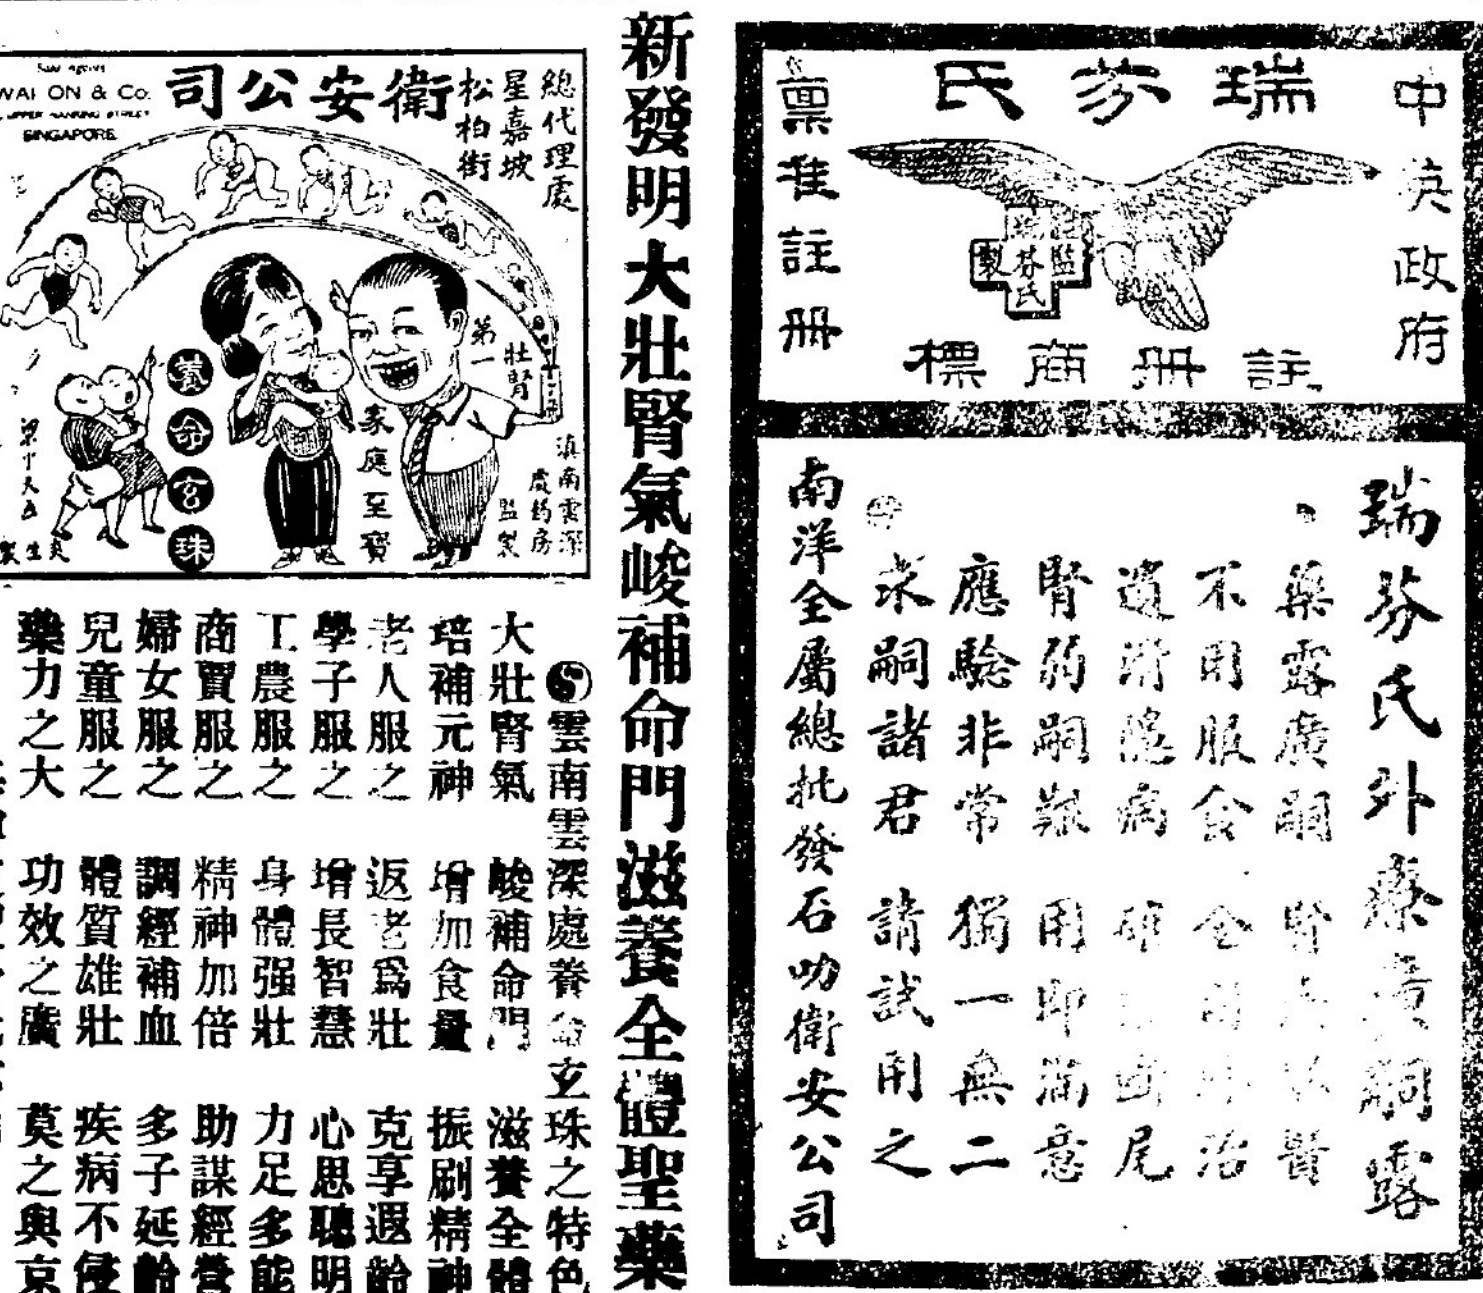 中英政府
瑞芬氏
稟准註冊
監
瑞芬氏
製
註冊商標
瑞芬氏外療廣嗣露
藥露廣嗣 腎
不用服食 全 治
遺滑隱病 斷尾
腎弱嗣艱 用即滿意
應驗非常 獨一無二
求嗣諸君 請試用之
南洋全屬總批發石叻衛安公司
新發明大壯腎氣峻補命門滋養全體聖藥
總代理處
星嘉坡
松柏街
衛安公司
Sole Agents
WAI ON & Co.
UPPER NANKING STREET
SINGAPORE.
第一
壯腎
滇南雲深
處藥房
監製
家庭至寶
養命玄珠
雲南雲深處養命玄珠之特色
大壯腎氣 峻補命門 滋養全體
培補元神 增加食量 振刷精神
老人服之 返老爲壯 克享遐齡
學子服之 增長智慧 心思聰明
工農服之 身體强壯 力足多能
商賈服之 精神加倍 助謀經營
婦女服之 調經補血 多子延齡
兒童服之 體質雄壯 疾病不侵
藥力之大 功效之廣 莫之與京